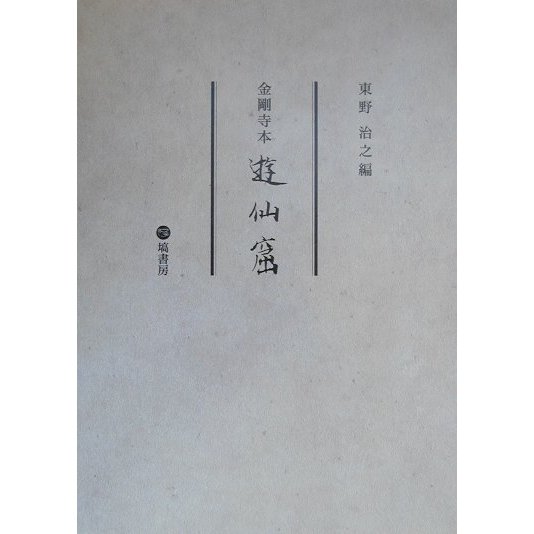 東野治之編
金剛寺本 遊仙窟
塙書房